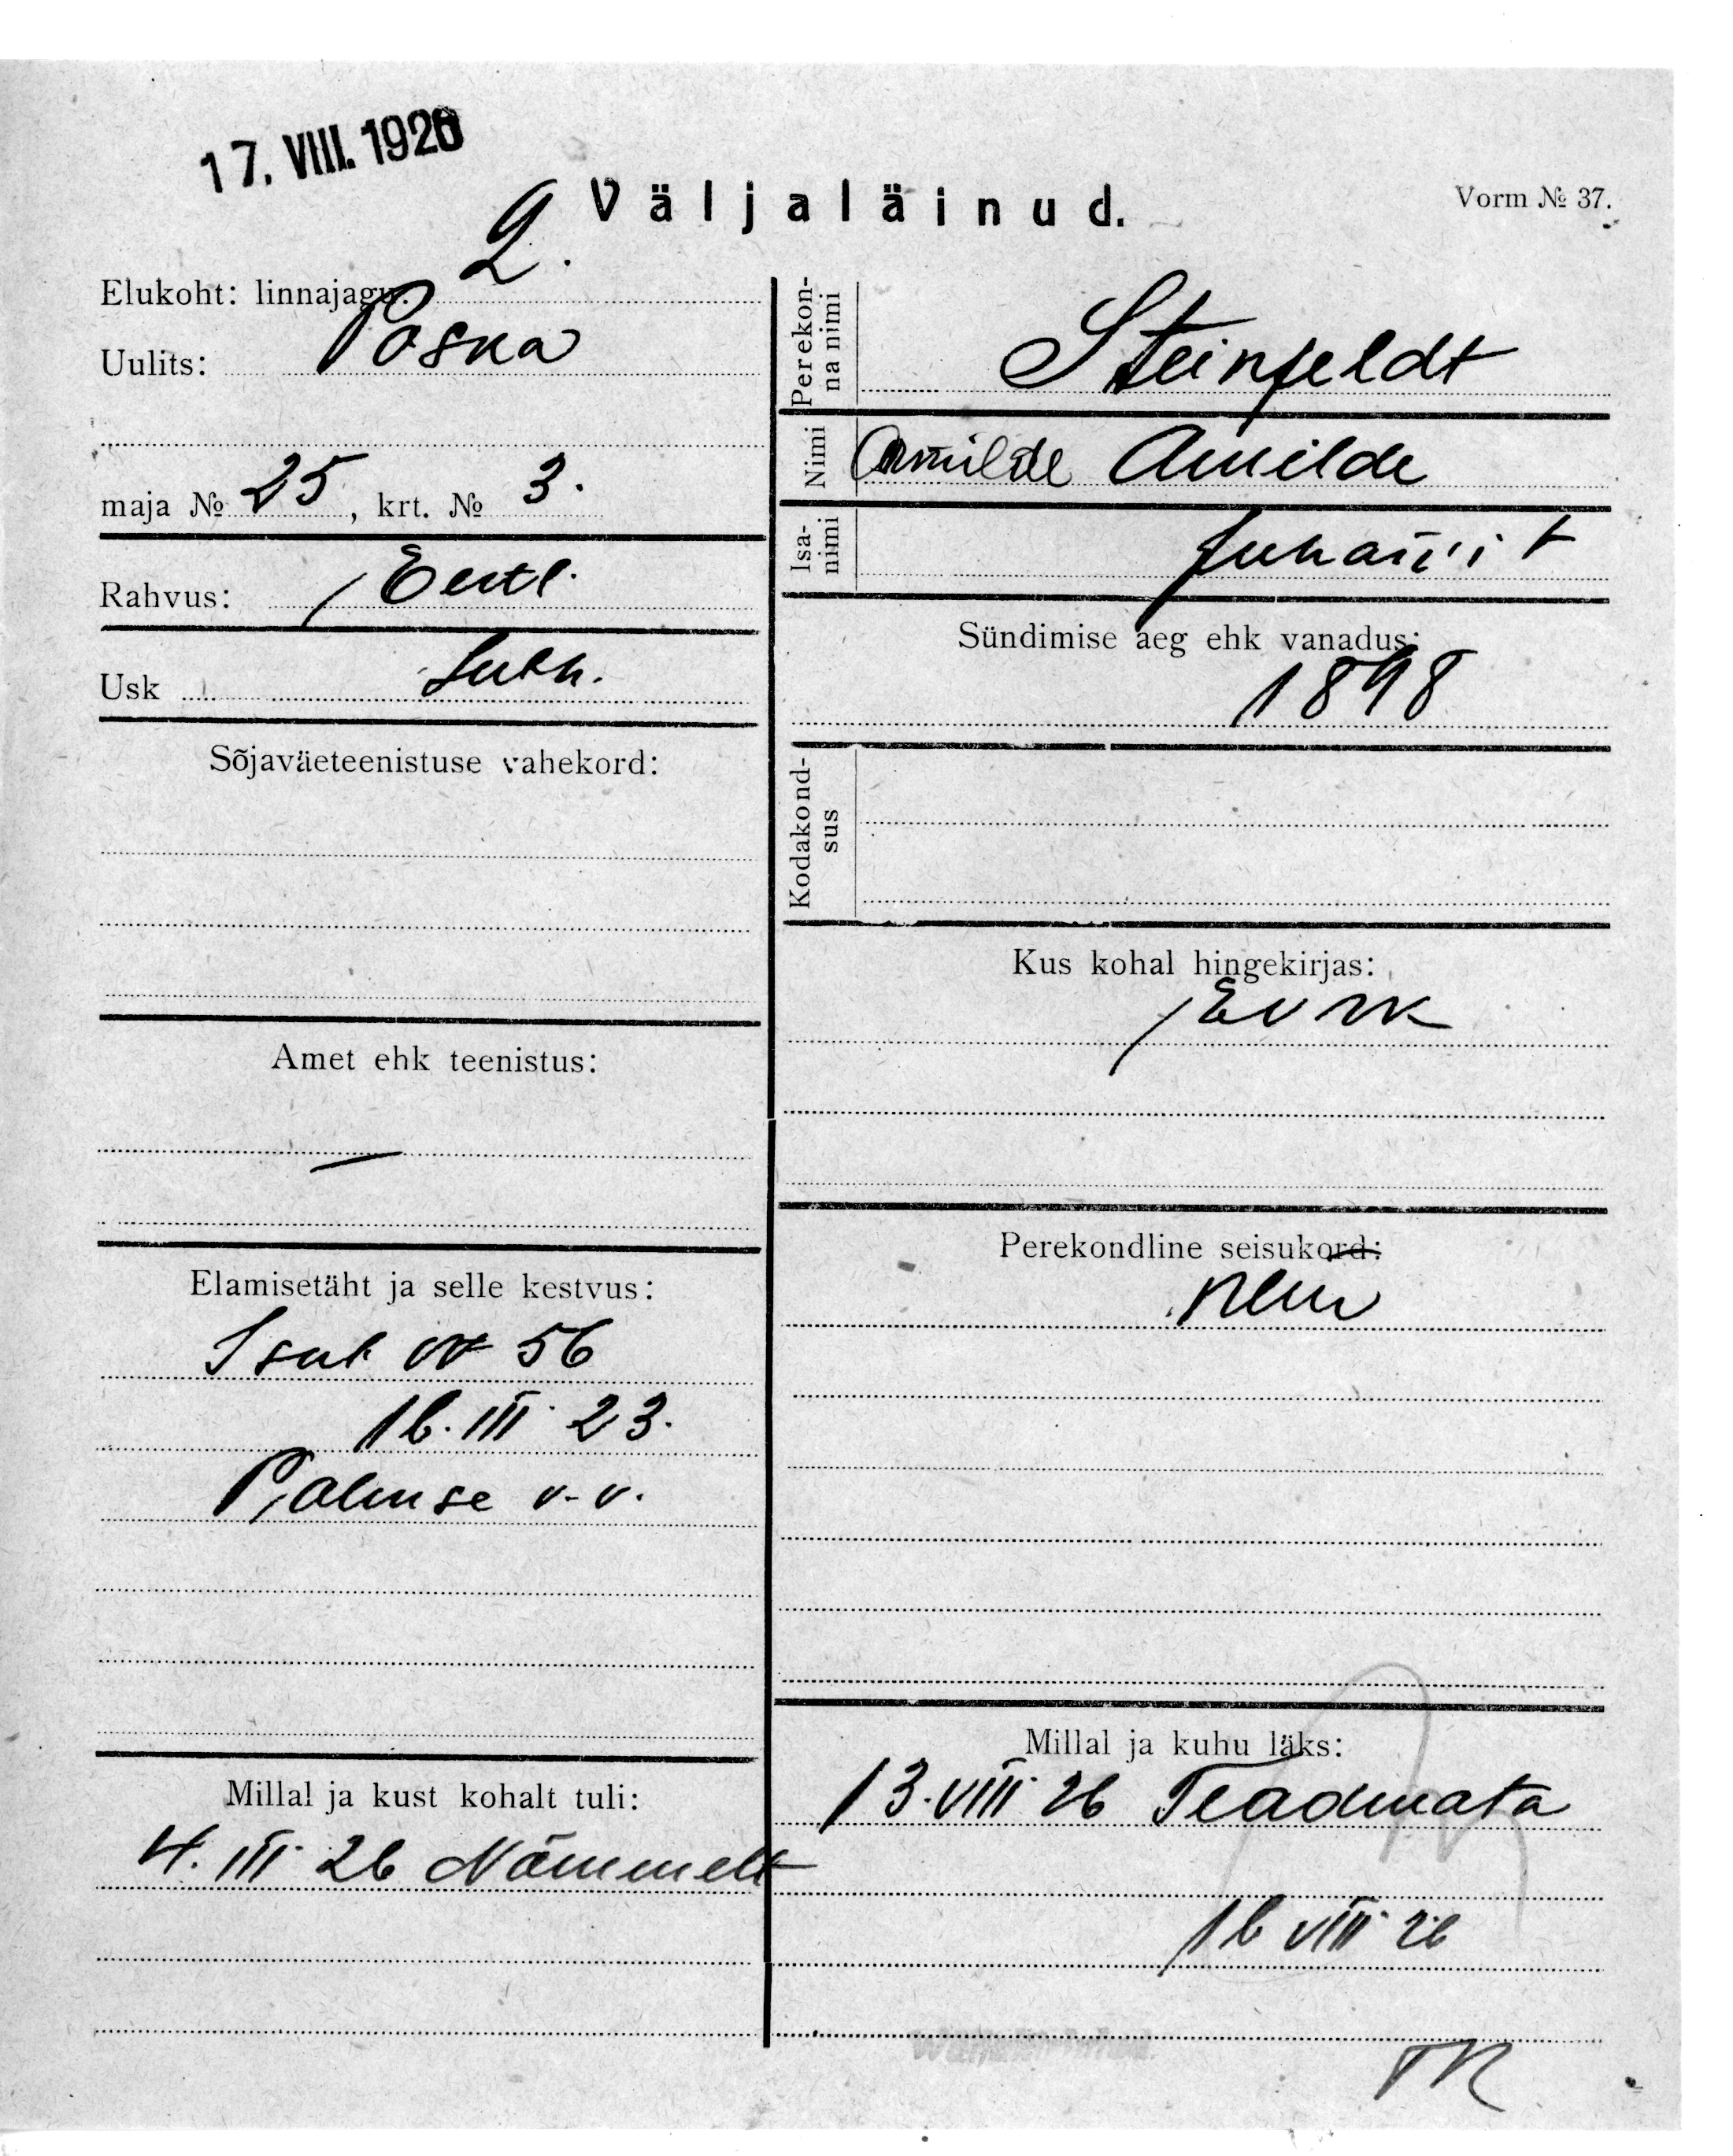 17. VIII. 1926
Väljaläinud.
Vorm № 37.
Elukoht: linnajagu: 2.
Uulits: Poska
maja № 25, krt. № 3.
Rahvus: Eestl.
Usk Luth.
Sõjaväeteenistuse vahekord:
Amet ehk teenistus:
—
Elamisetäht ja selle kestvus:
Isut № 56
16. III 23.
Palmse v.-v.
Millal ja kust kohalt tuli:
4. III 26 Nõmmelt
Perekon-
na nimi
Steinfeldt
Nimi
Amilde Amilde
Isa-
nimi
Juhani t
Sündimise aeg ehk vanadus:
1898
Kodakond-
sus
Kus kohal hingekirjas:
Perekondline seisukord:
Millal ja kuhu läks:
13. VIII 26 Teadmata
16 VIII 26